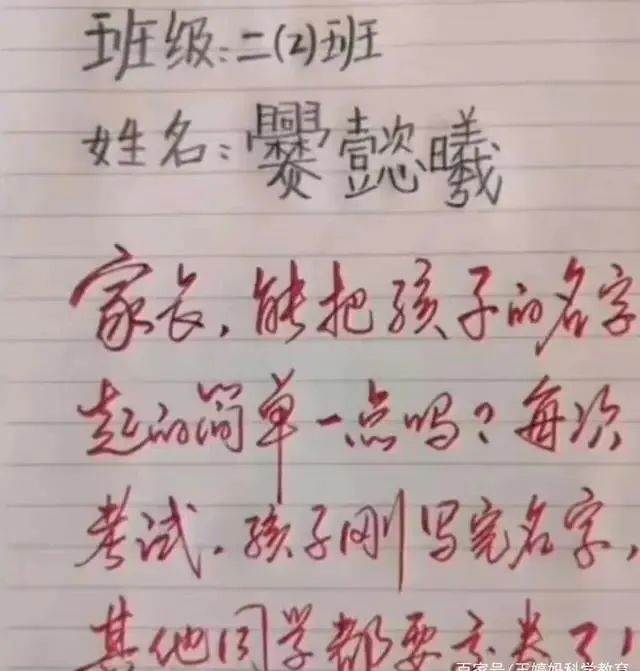 班级:二(2)班
姓名:爨懿曦
家长,能把孩子的名字
起的简单一点吗?每次
考试,孩子刚写完名字,
其他同学都要交卷了!
百家号/王婷妈科学教育